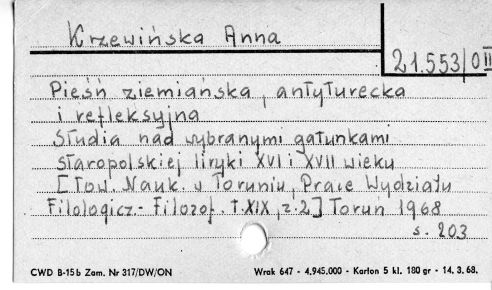 Krzewińska Anna
21.553/O II
Pieśń ziemiańska, antyturecka
i refleksyjna
Studia nad wybranymi gatunkami
staropolskiej liryki XVI i XVII wieku
[Tow. Nauk. w Toruniu, Prace Wydziału
Filologicz.- Filozof. T. XIX, z. 2] Toruń 1968
s. 203
CWD B-15b Zam. Nr 317/DW/ON Wrak 647 - 4.945.000 - Karton 5 kl. 180 gr - 14. 3. 68.